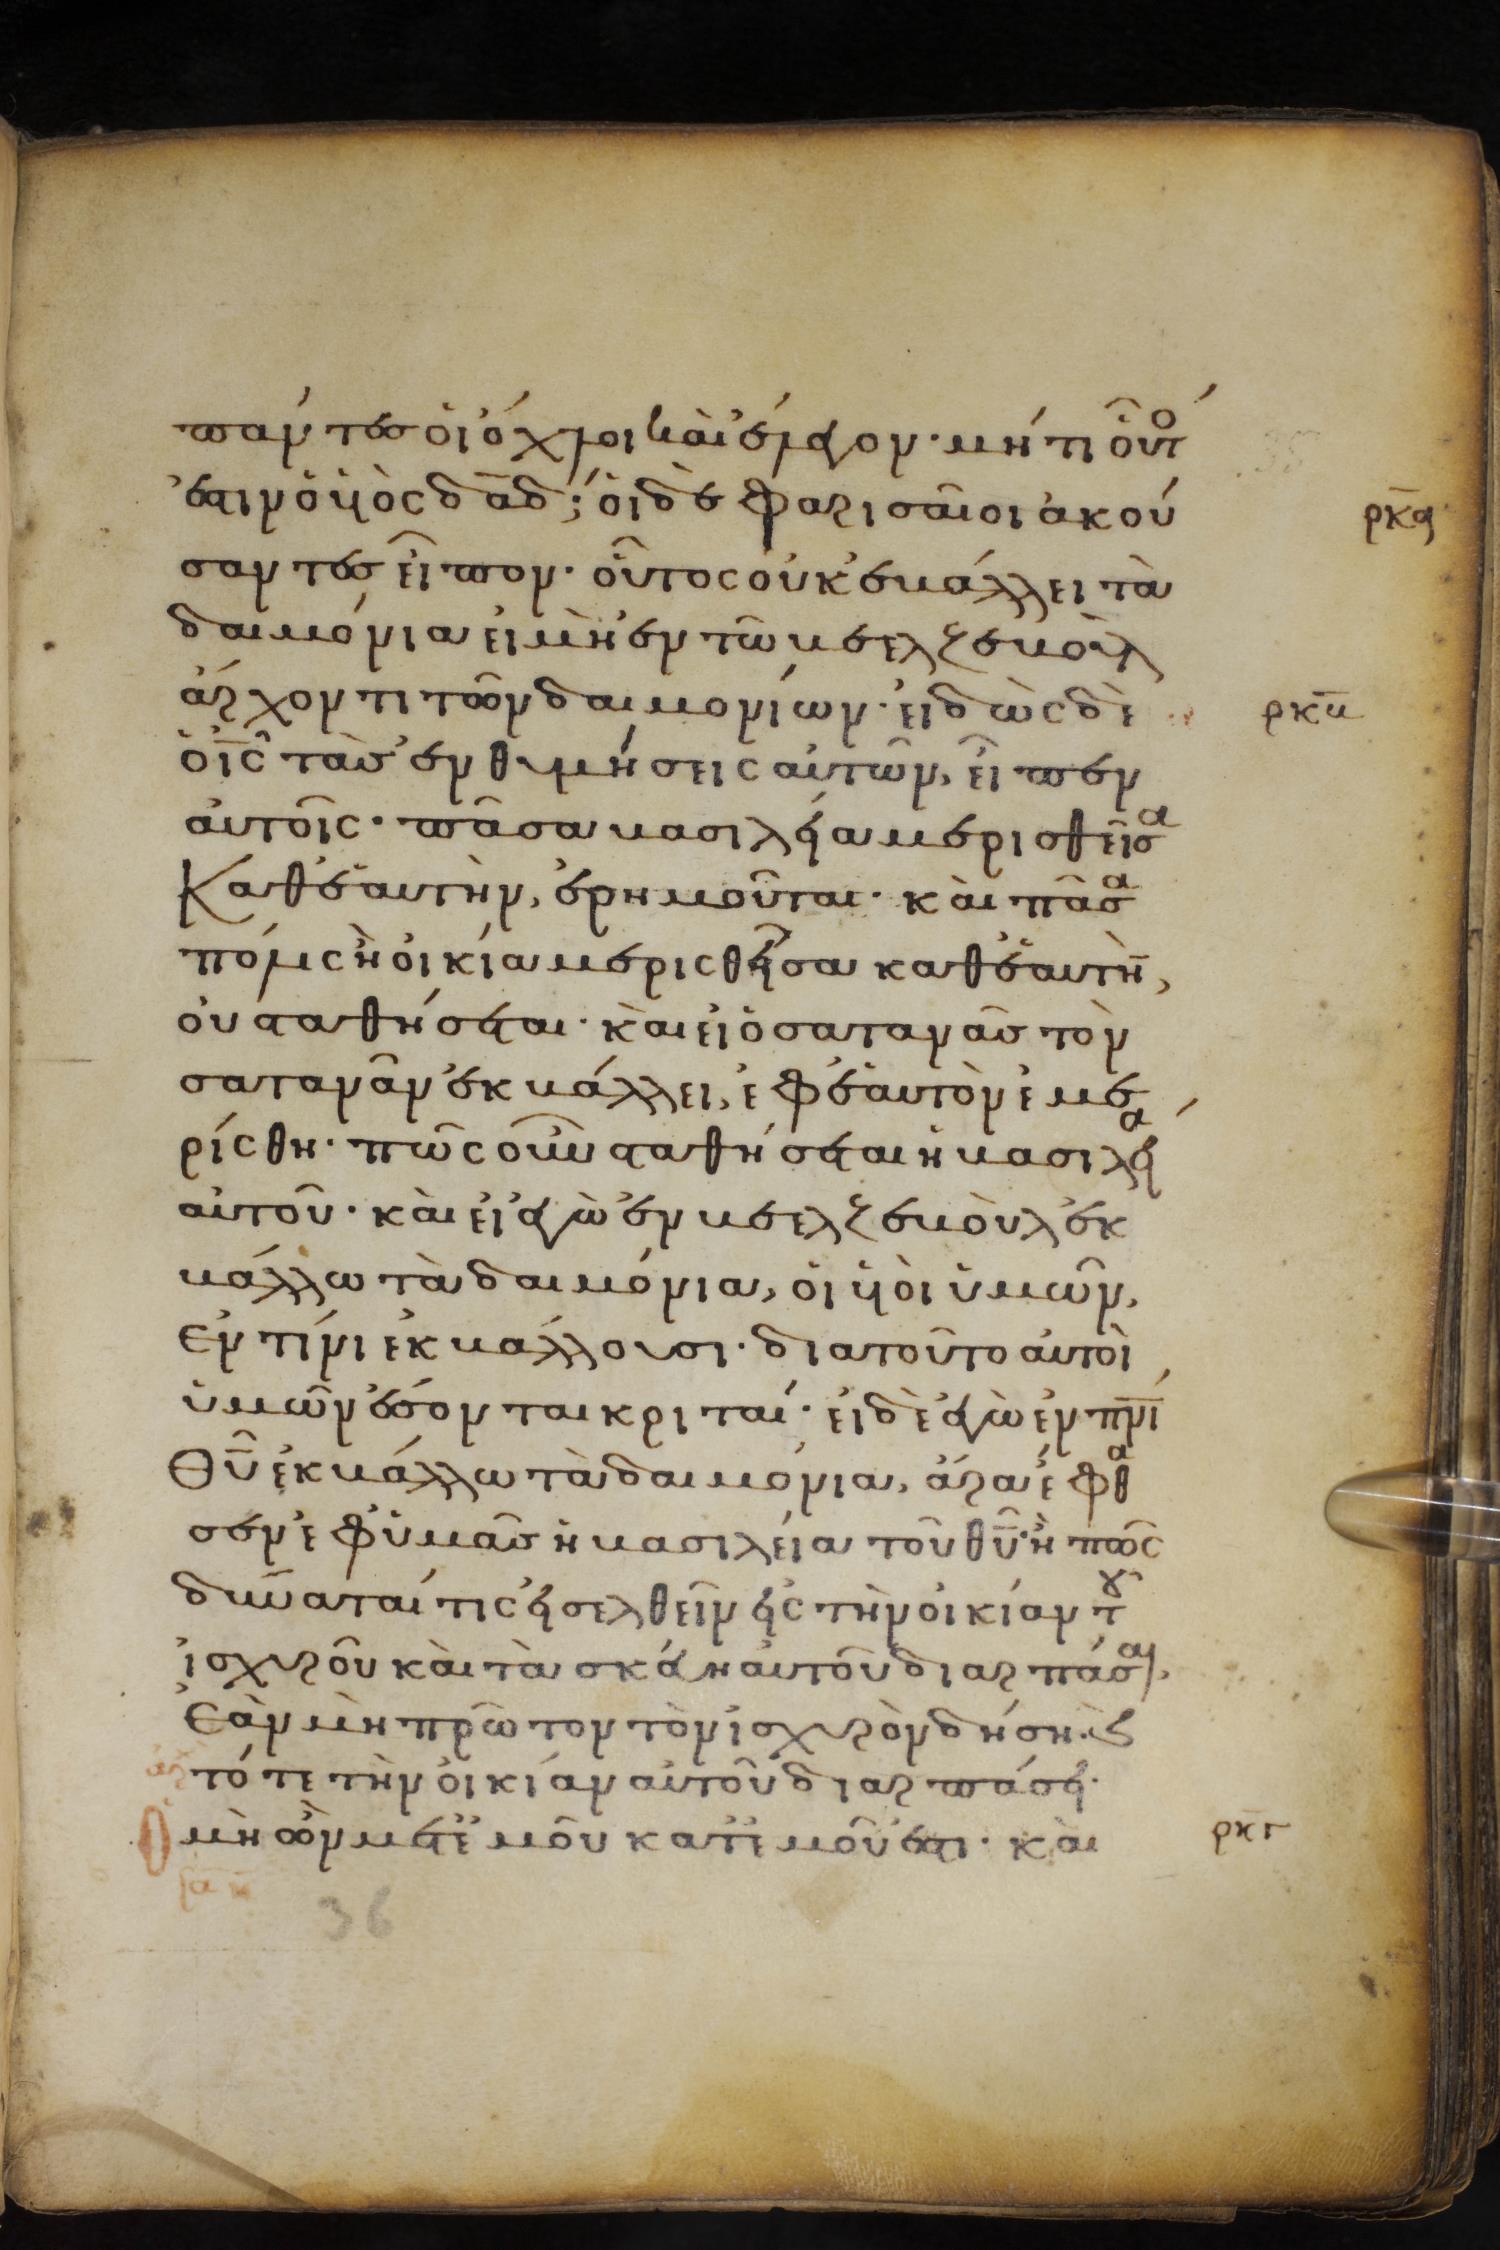 πάντες οἱ ὄχλοι καὶ ἔλεγον· μήτι οὗτο
ἐστιν ὁ υἱὸς δαδ; οἱ δὲ φαρισαῖοι ἀκού
ρκα
σαντες εἶπον· οὗτος οὐκ ἐκβάλλει τὰ
δαιμόνια εἰ μὴ ἐν τῶ βεελζεβοὺλ
ἄρχοντι τῶν δαιμονίων· εἰδὼς δὲ
ρκβ
ὁ ις τὰς ἐνθυμήσεις αὐτῶν, εἶπεν
αὐτοῖς· πᾶσα βασιλεία μερισθεῖσα
Καθ' ἑαυτὴν, ἐρημοῦται· καὶ πᾶσα
πόλις ἢ οἰκία μερισθεῖσα καθ' ἑαυτὴν,
οὐ σταθήσεται· καὶ εἰ ὁ σατανᾶς τὸν
σατανᾶν ἐκβάλλει, ἐφ' ἑαυτὸν ἐμε
ρίσθη· πῶς οὖν σταθήσεται ἡ βασιλεία
αὐτοῦ· καὶ εἰ ἐγὼ ἐν βεελζεβοὺλ ἐκ
βάλλω τὰ δαιμόνια, οἱ υἱοὶ ὑμῶν,
ἐν τίνι ἐκβάλλουσι· διατοῦτο αὐτοὶ
ὑμῶν ἔσονται κριταί· εἰ δὲ ἐγὼ ἐν πνι
Θυ ἐκβάλλω τὰ δαιμόνια, ἄρα ἔφθα
σεν ἐφ' ὑμᾶς ἡ βασιλεία τοῦ θυ· ἢ πῶς
δύναταί τις εἰσελθεῖν εἰς τὴν οἰκίαν τοῦ
ἰσχυροῦ καὶ τὰ σκεύη αὐτοῦ διαρπάσαι,
Ἐὰν μὴ πρῶτον τὸν ἰσχυρὸν δήση· καὶ
τότε τὴν οἰκίαν αὐτοῦ διαρπάσει·
Ὁ μὴ ὢν μετ' ἐμοῦ κατ' ἐμοῦ ἐστι· καὶ
ρκγ
36